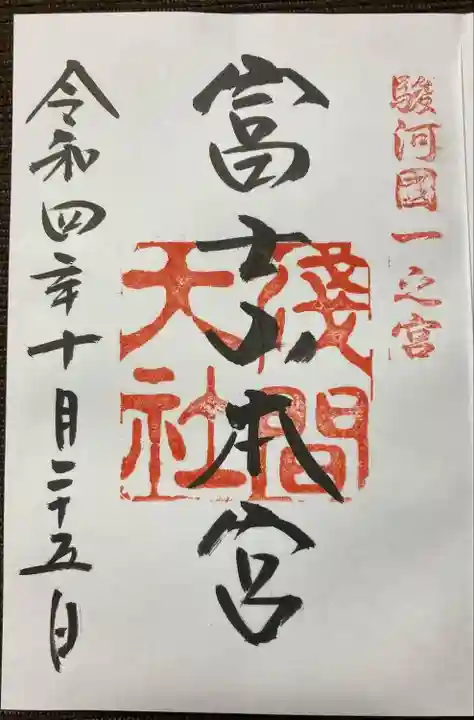 駿河國一之宮
冨士山本宮
淺間
大社
令和四年十月二十五日